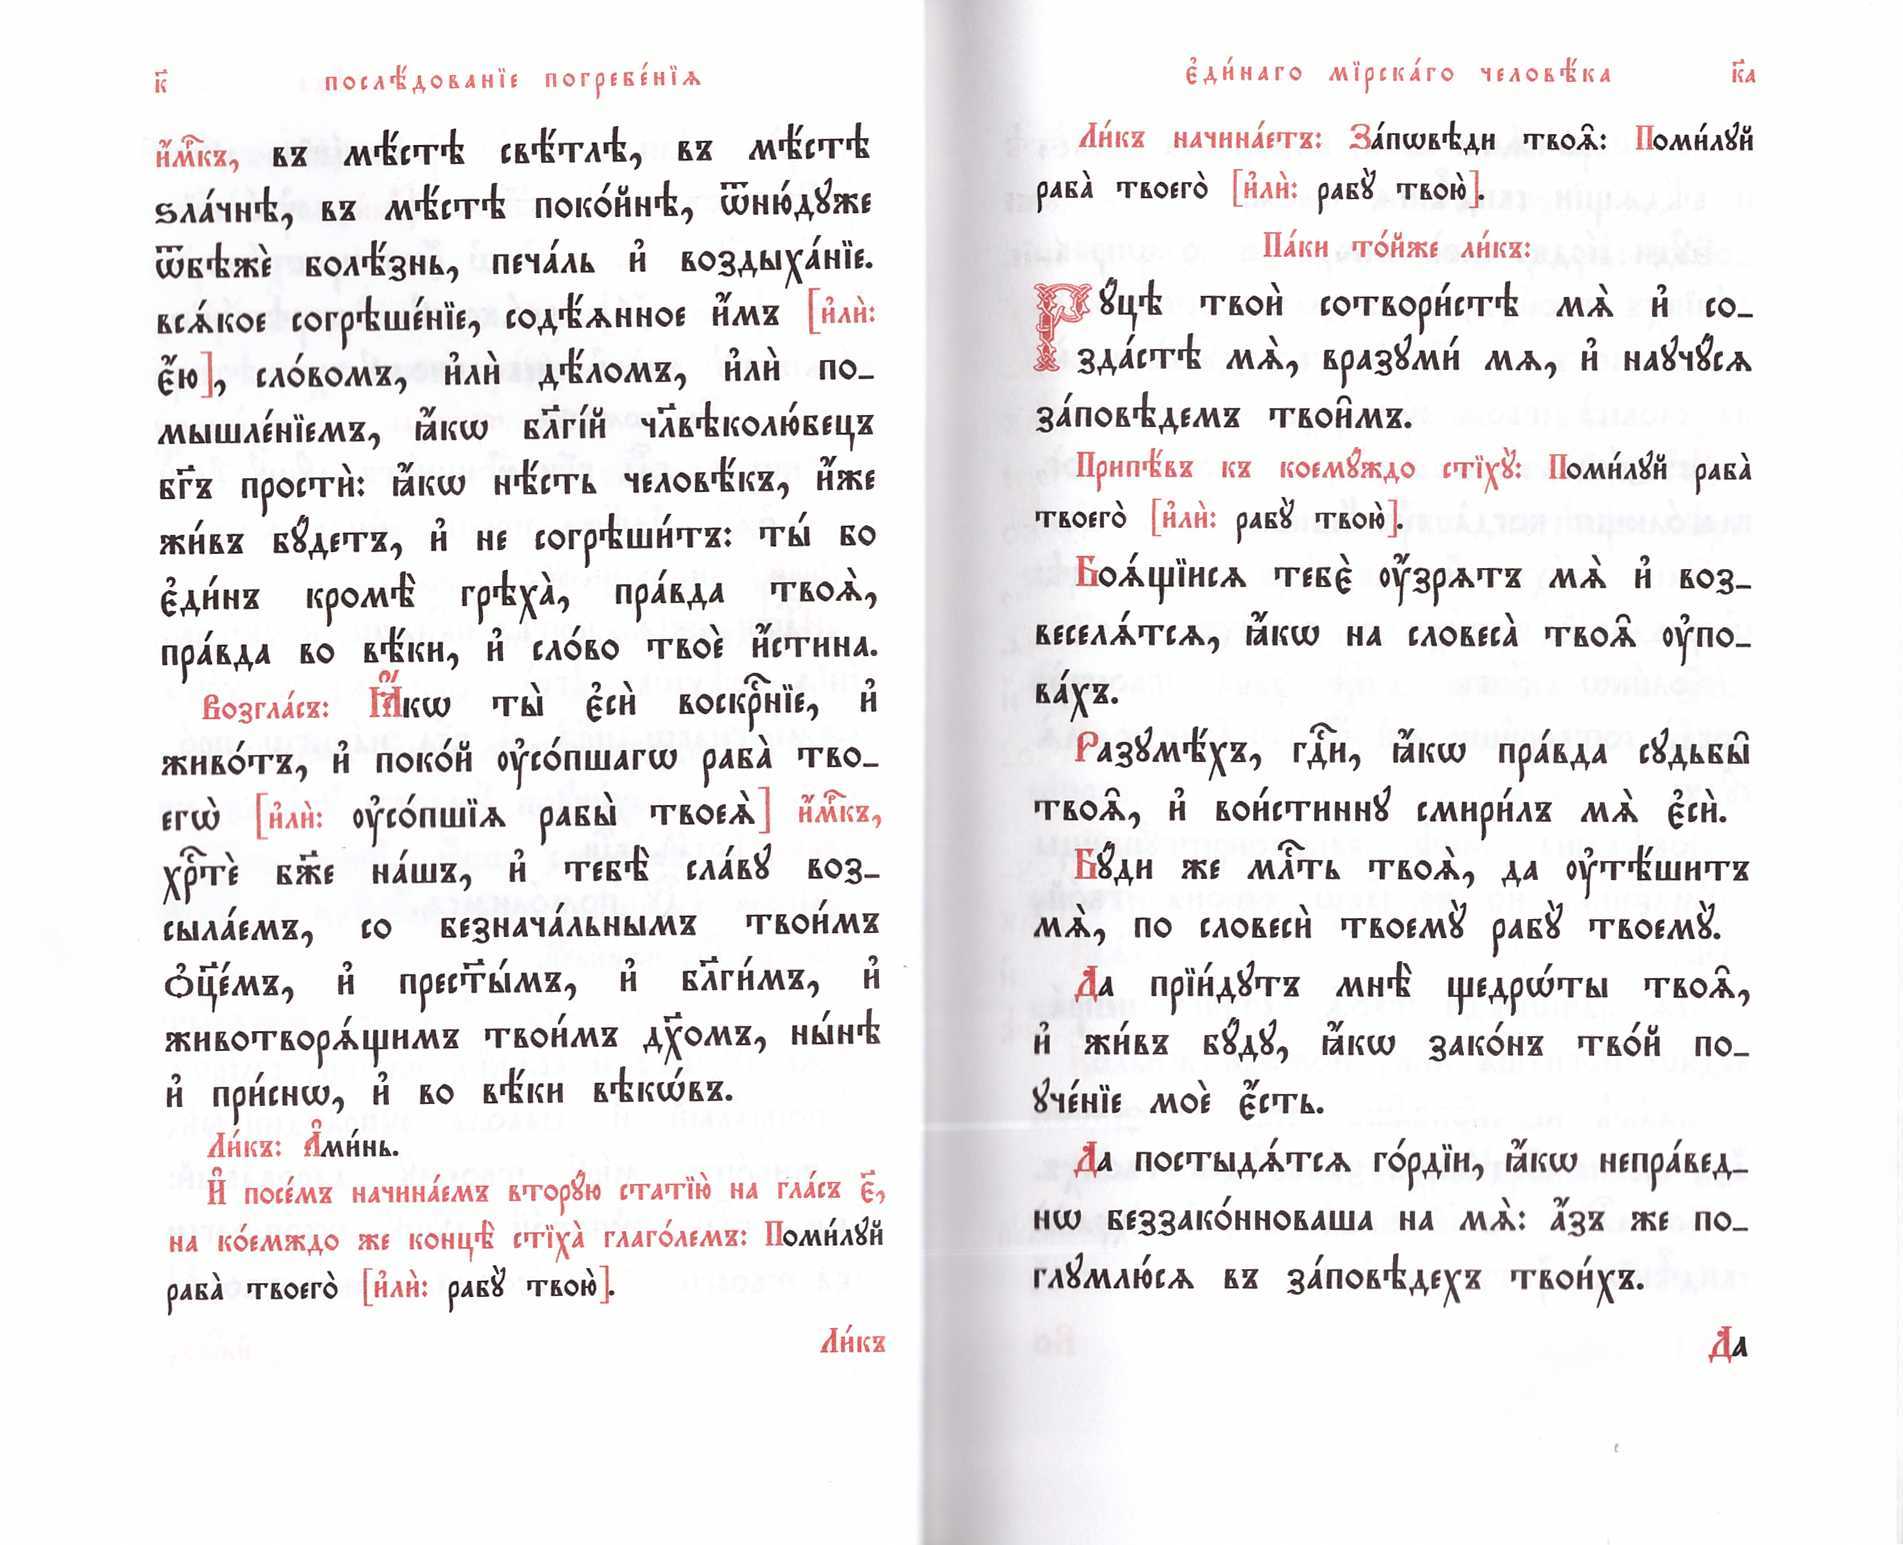 к҃ послѣ́дованїе погребе́нїѧ
и҆́мкъ, въ мѣ́стѣ свѣ́тлѣ, въ мѣ́стѣ
ѕла́чнѣ, въ мѣ́стѣ поко́йнѣ, ѿню́дꙋже
ѿбѣжѐ болѣ́знь, печа́ль и҆ воздыха́нїе.
всѧ́кое согрѣше́нїе, содѣ́ѧнное и҆́мъ [и҆лѝ:
є҆́ю], сло́вомъ, и҆лѝ дѣ́ломъ, и҆лѝ по_
мышле́нїемъ, ꙗ҆́кѡ бл҃гі́й чл҃вѣколю́бецъ
бг҃ъ простѝ: ꙗ҆́кѡ нѣ́сть человѣ́къ, и҆́же
жи́въ бꙋ́детъ, и҆ не согрѣши́тъ: ты́ бо
є҆ди́нъ кромѣ̀ грѣха̀, пра́вда твоѧ̀,
пра́вда во вѣ́ки, и҆ сло́во твоѐ и҆́стина.
Возгла́съ: Ꙗ҆́кѡ ты̀ є҆сѝ воскрⷭ҇нїе, и҆
живо́тъ, и҆ поко́й ᲂу҆со́пшагѡ раба̀ тво_
егѡ̀ [и҆лѝ: ᲂу҆со́пшїѧ рабы̀ твоеѧ̀] и҆́мкъ,
хрⷭ҇тѐ бж҃е на́шъ, и҆ тебѣ̀ сла́вꙋ воз_
сыла́емъ, со безнача́льнымъ твои́мъ
ѻ҆ц҃е́мъ, и҆ прест҃ы́мъ, и҆ бл҃ги́мъ, и҆
животворѧ́щимъ твои́мъ дх҃омъ, ны́нѣ
и҆ при́снѡ, и҆ во вѣ́ки вѣкѡ́въ.
Ли́къ: А҆ми́нь.
И҆ посе́мъ начина́емъ вторꙋ́ю статїю̀ на гла́съ є҃,
на ко́емждо же концѣ̀ стїха̀ глаго́лемъ: Поми́лꙋй
раба̀ твоего̀ [и҆лѝ: рабꙋ̀ твою̀].
Ли́къ
є҆ди́наго мїрска́го человѣ́ка к҃а
Ли́къ начина́етъ: За́пѡвѣди твоѧ̑: Поми́лꙋй
раба̀ твоего̀ [и҆лѝ: рабꙋ̀ твою̀].
Па́ки то́йже ли́къ:
Рꙋ́цѣ твоѝ сотвори́стѣ мѧ̀ и҆ со_
зда́стѣ мѧ̀, вразꙋми́ мѧ, и҆ наꙋчꙋ́сѧ
за́повѣдемъ твои̑мъ.
Припѣ́въ къ коемꙋ́ждо стїхꙋ̀: Поми́лꙋй раба̀
твоего̀ [и҆лѝ: рабꙋ̀ твою̀].
Боѧ́щїисѧ тебє̀ ᲂу҆́зрѧтъ мѧ̀ и҆ воз_
веселѧ́тсѧ, ꙗ҆́кѡ на словеса̀ твоѧ̑ ᲂу҆по_
ва́хъ.
Разꙋмѣ́хъ, гдⷭ҇и, ꙗ҆́кѡ пра́вда сꙋдьбы̑
твоѧ̑, и҆ вои́стиннꙋ смири́лъ мѧ̀ є҆сѝ.
Бꙋ́ди же млⷭ҇ть твоѧ̀, да ᲂу҆тѣ́шитъ
мѧ̀, по словесѝ твоемꙋ̀ рабꙋ̀ твоемꙋ̀.
Да прїи́дꙋтъ мнѣ̀ щедрѡ́ты твоѧ̑,
и҆ жи́въ бꙋ́дꙋ, ꙗ҆́кѡ зако́нъ тво́й по_
ꙋче́нїе моѐ є҆́сть.
Да постыдѧ́тсѧ го́рдїи, ꙗ҆́кѡ непра́вед_
нѡ беззако́нноваша на мѧ̀: а҆́зъ же по_
глꙋмлю́сѧ въ за́повѣдехъ твои́хъ.
Да